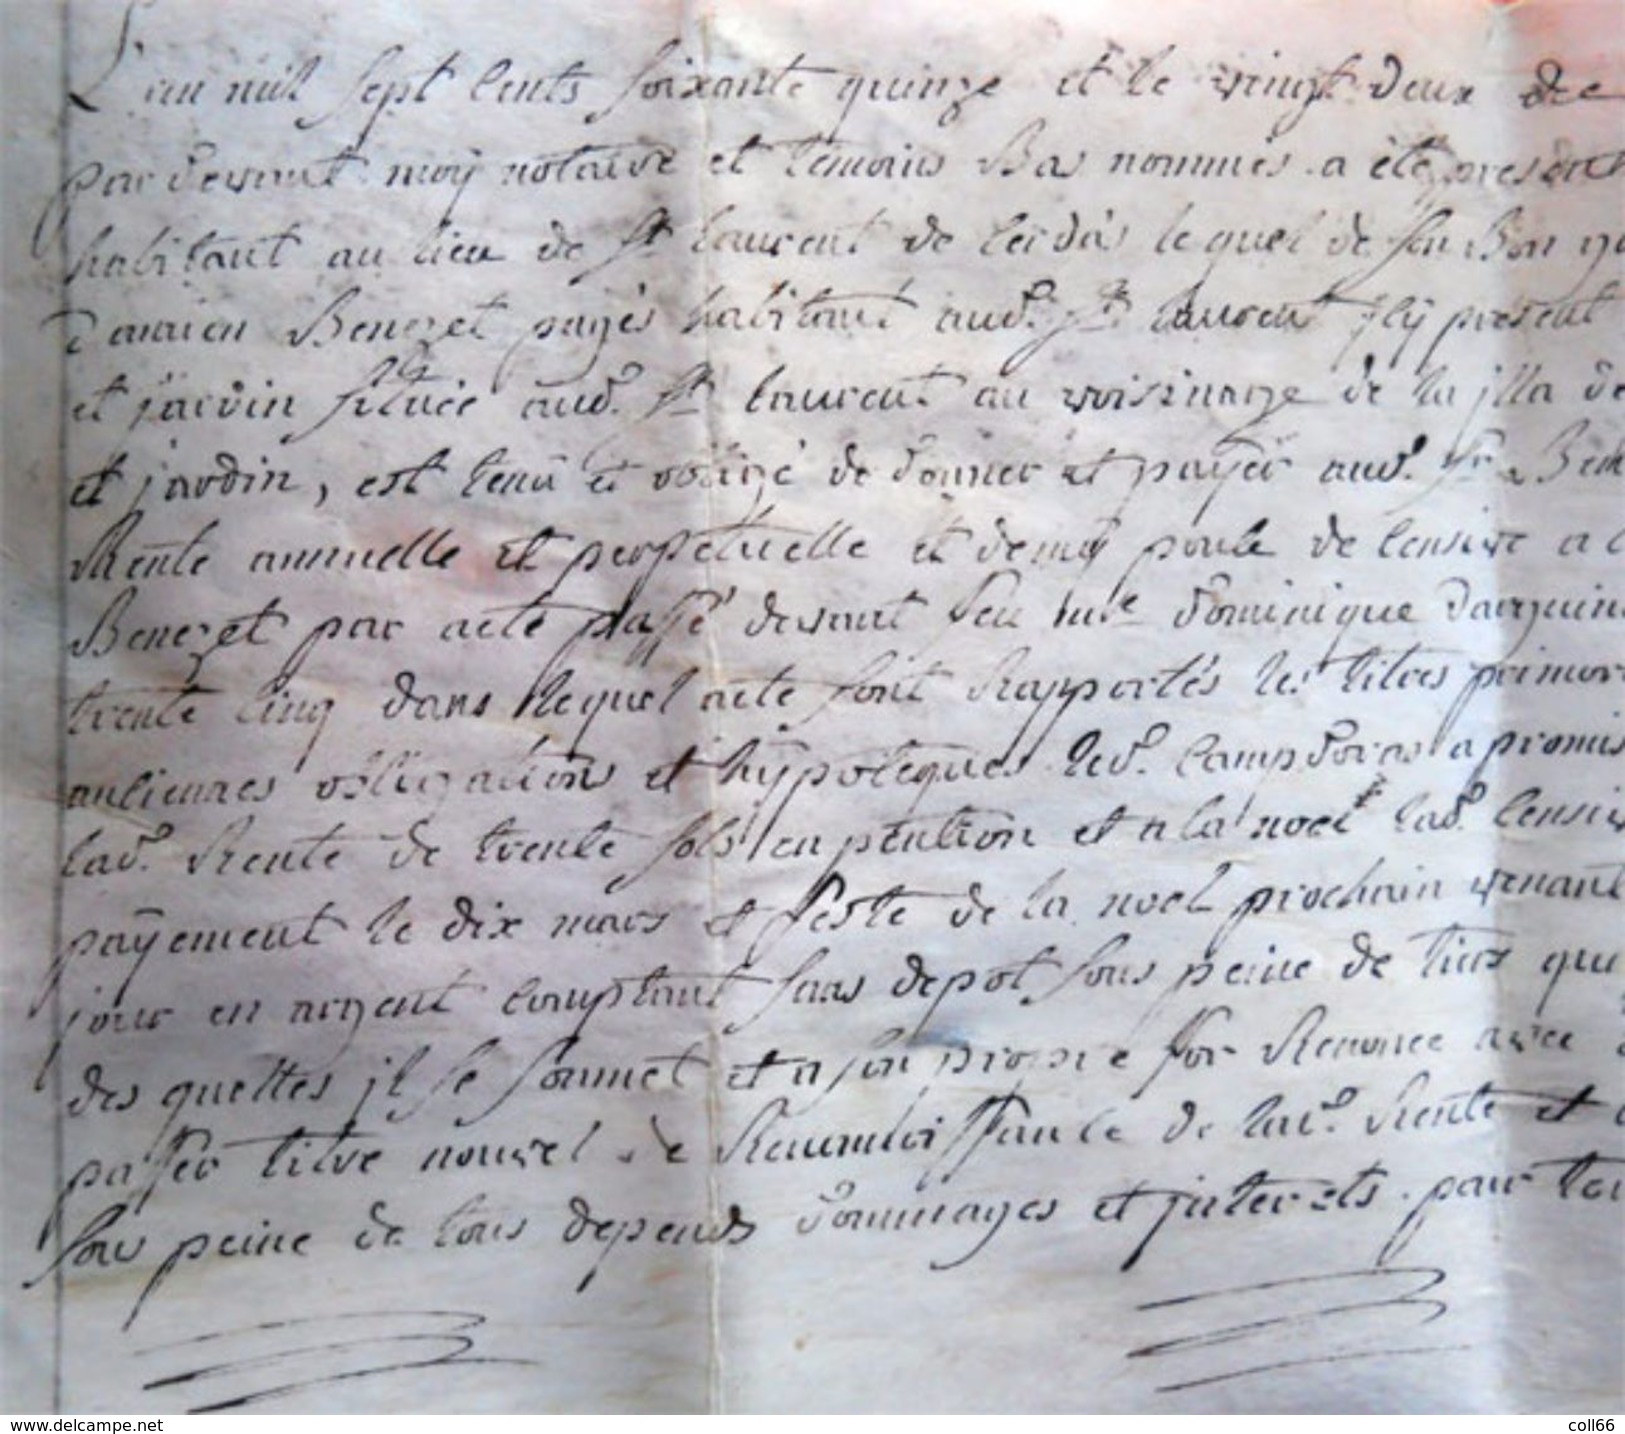 L'an mil sept cents soixante quinze et le vingt deux dec
par devant moÿ notaire et temoins Bas nommés a été present
habitant au lieu de St laurent de cerdás lequel de son Bon
Benezet pagés habitant aud. St laurent jcÿ present
et jardin situéé aud. St laurent au voisinage de la jlla de
et jardin, est tenu et obligé de donner et payer aud. Sr
Rente annuelle et perpetuelle et demÿ poule de censive a
Benezet par acte passé devant feu me dominique
trente cinq dans lequel acte sont Rapportés les titres
anciennes obligations et hÿpoteques led. campdoras a promis
lad. Rente de trente sols en pention et a la noel lad.
paÿement le dix mars et feste de la noel prochain venant
jour en argent comptant sans depot sous peine de tiers
des quelles jl se soumet et a son propre for Renonce avec
passer titre nouvel de Reconnoissance de lad. Rente et
sous peine de tous depends dommages et jnterets. pour
www.delcampe.net
coll66